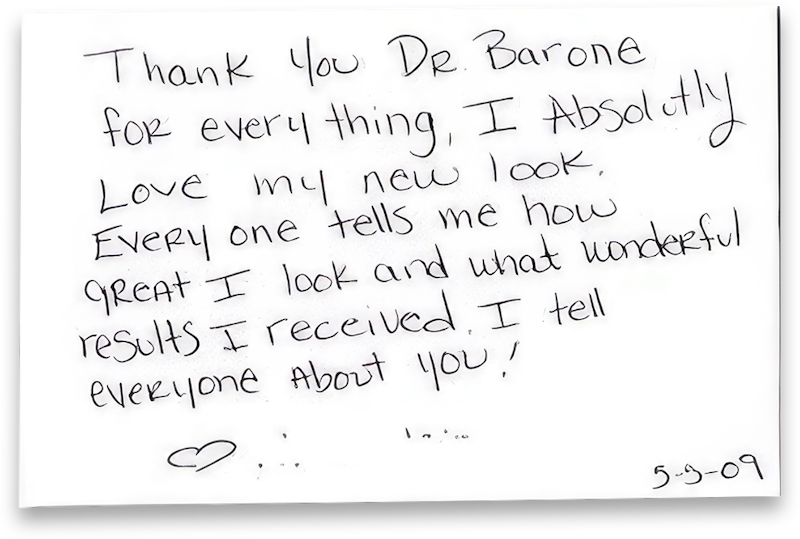 Thank You Dr. Barone
for every thing, I Absolutly
Love my new look.
Every one tells me how
great I look and what wonderful
results I received. I tell
everyone About you!
5-9-09